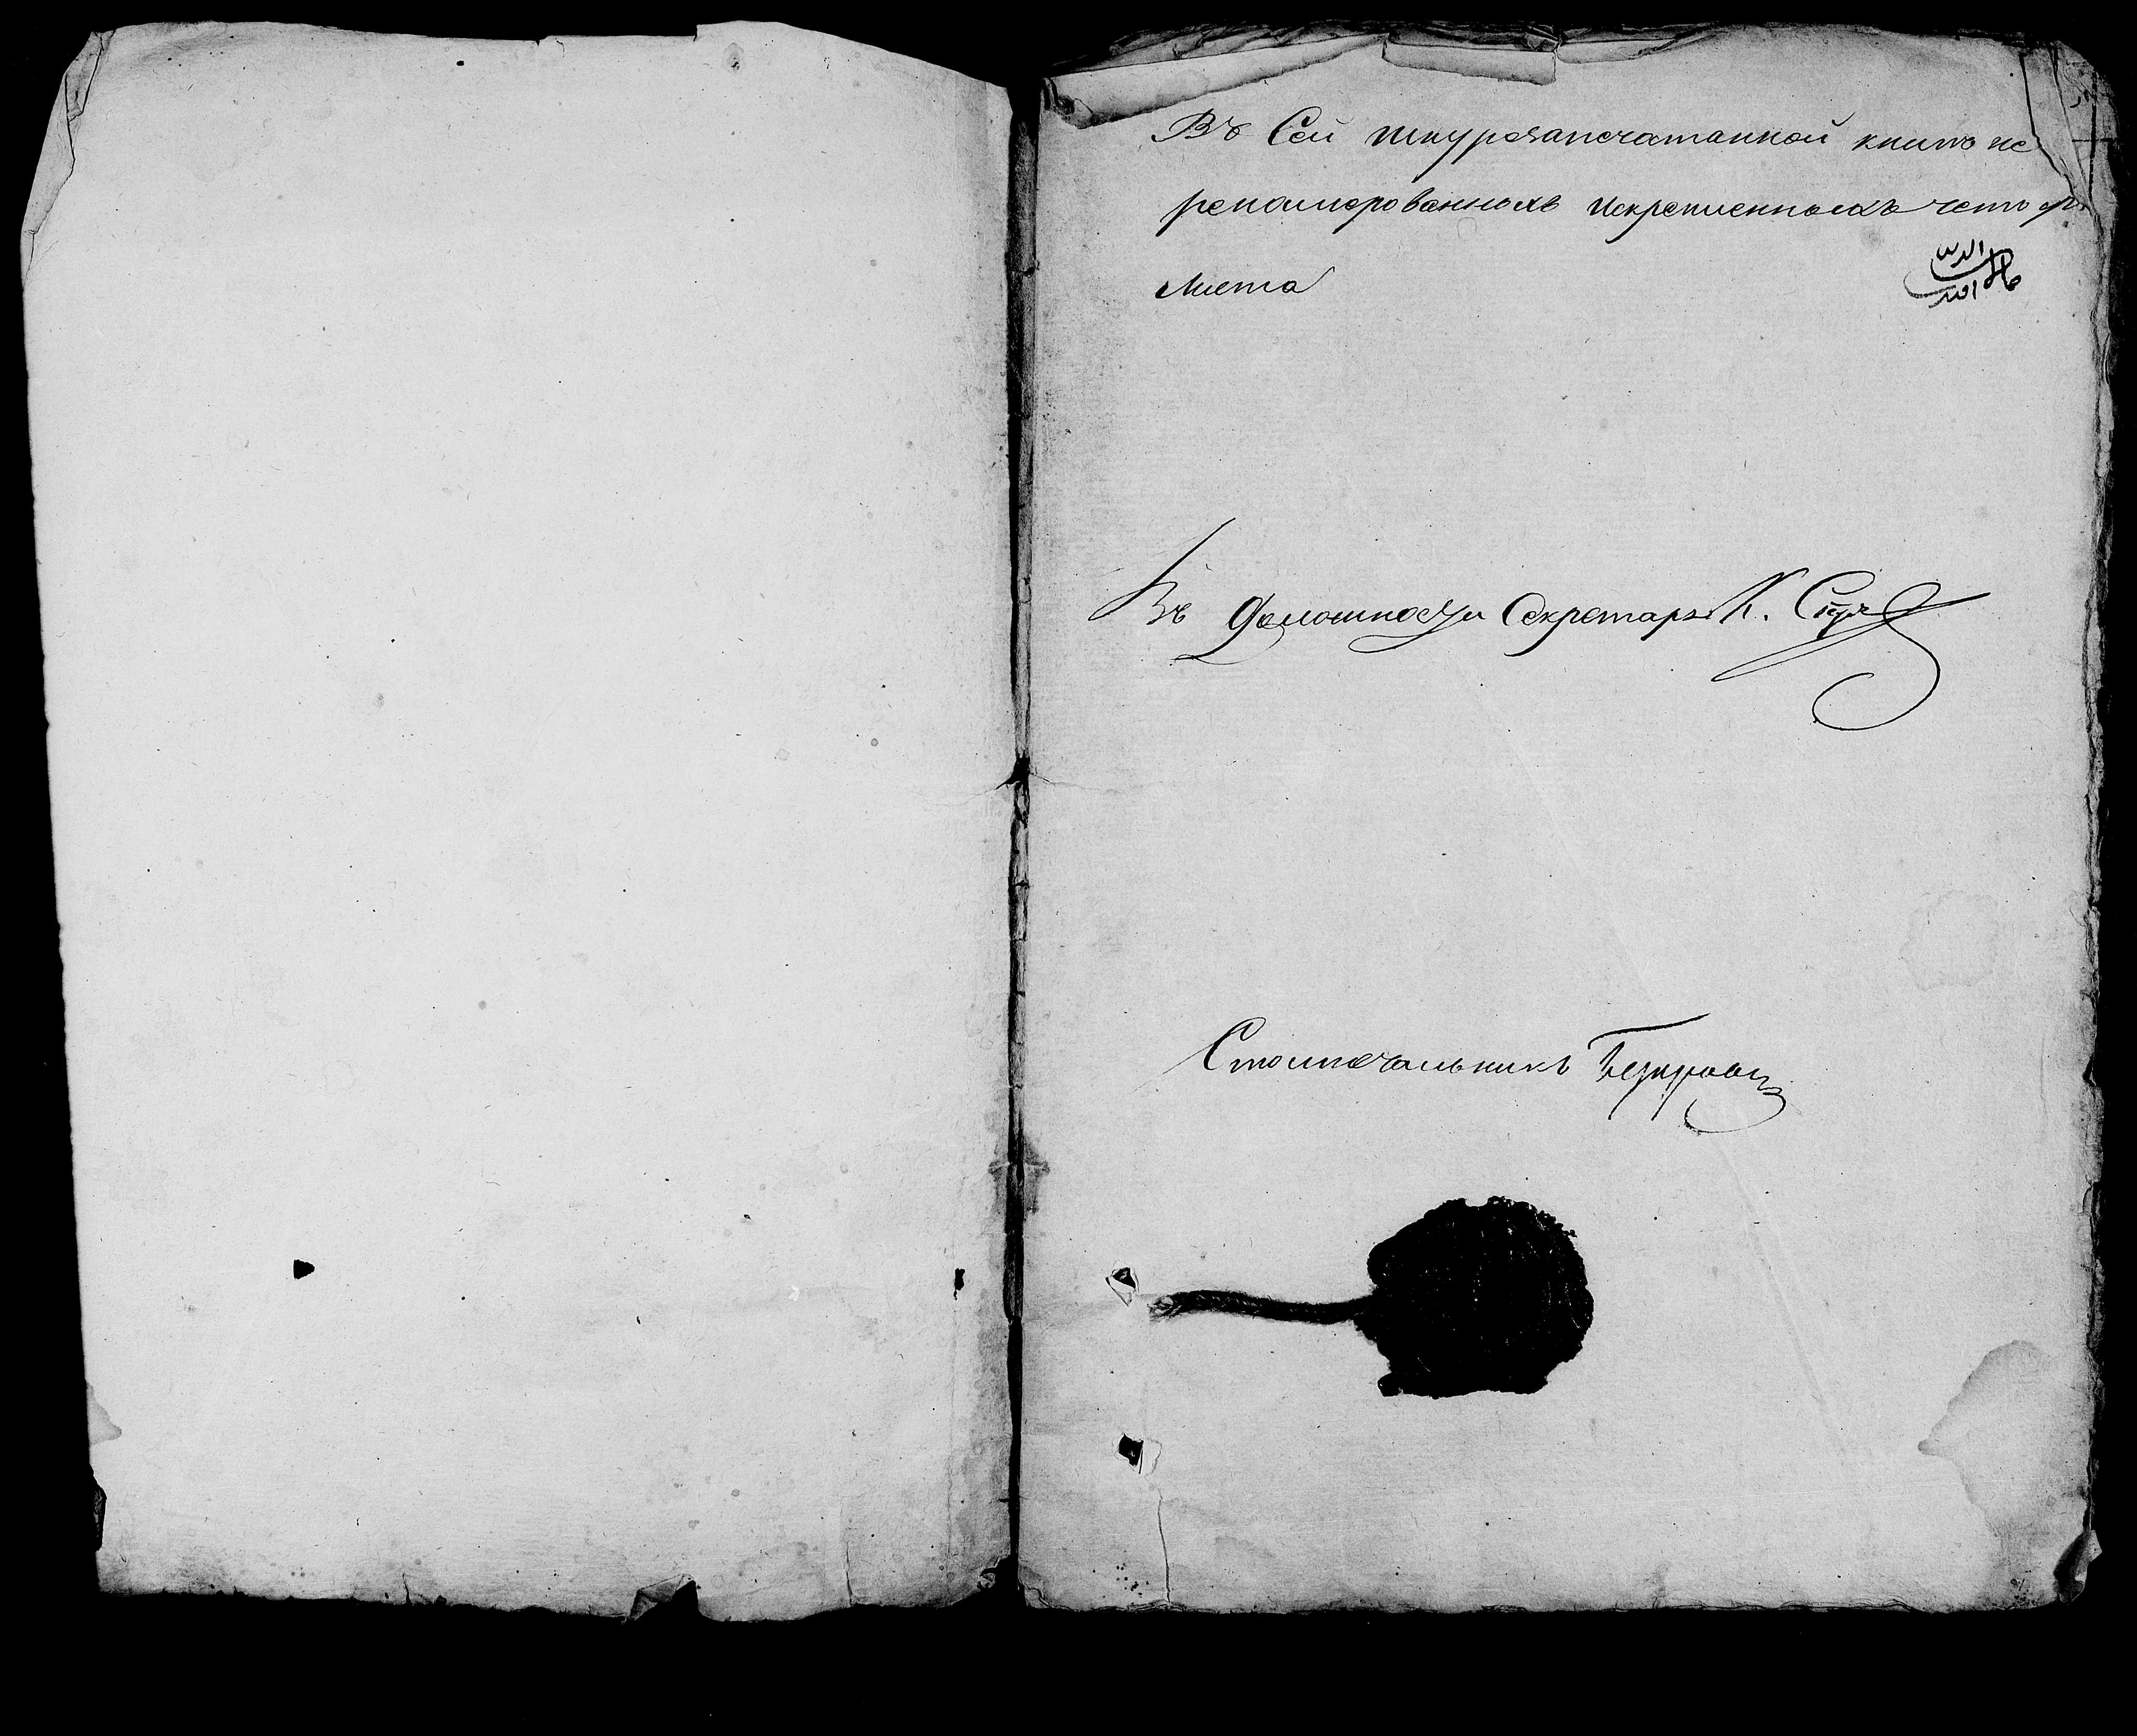 Въ Сей шнурозапечатанной книге пе
реномерованныхъ искрепленныхъ четыр
листа
Въ Должности Секретаря К.
Столоначальникъ